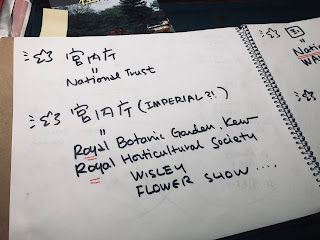 宮内庁
"
National Trust
宮内庁 (IMPERIAL?!.)
"
Royal Botanic Garden, Kew
Royal Horticultural Society
WISLEY
FLOWER SHOW ....
Natio
WA